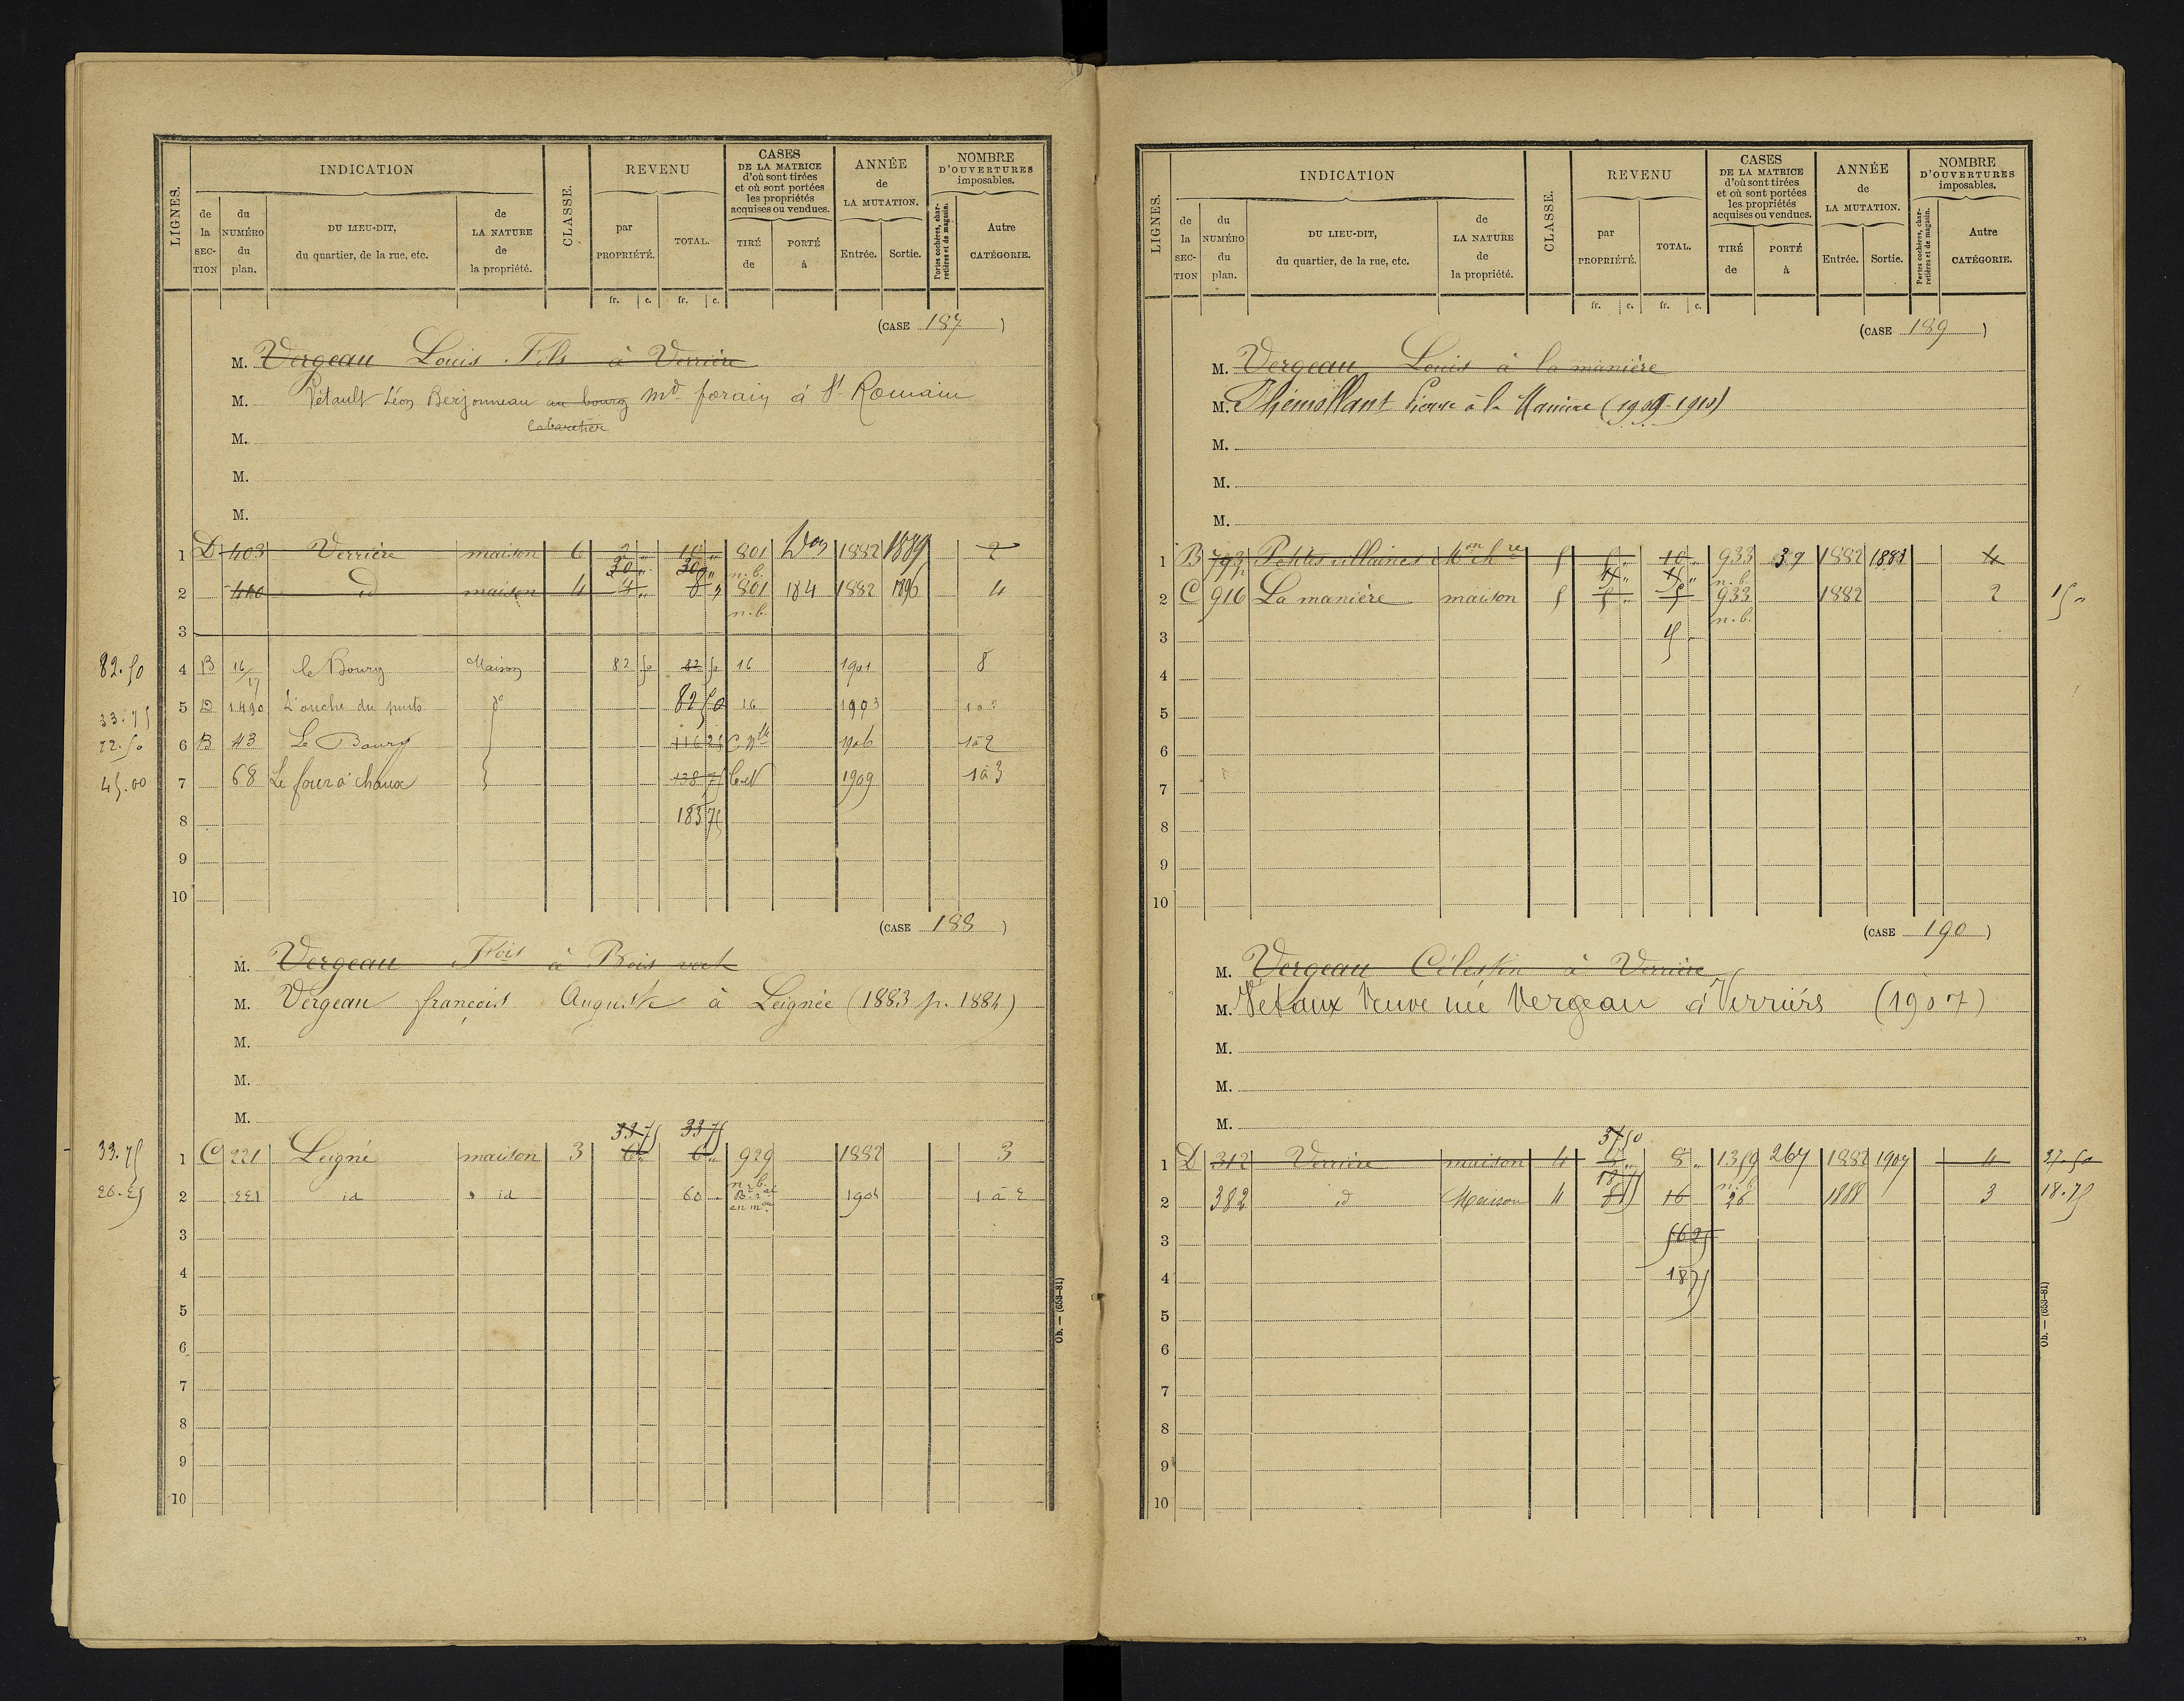 LIGNES.
INDICATION
CLASSE.
REVENU
CASES
DE LA MATRICE
d'où sont tirées
et où sont portées
les propriétés
acquises ou vendues.
ANNÉE
de
LA MUTATION.
NOMBRE
D'OUVERTURES
imposables.
de la SECTION
du NUMÉRO du plan.
DU LIEU-DIT,
du quartier, de la rue, etc.
de LA NATURE de la propriété.
par PROPRIÉTÉ.
TOTAL.
TIRÉ de
PORTÉ à
Entrée.
Sortie.
Portes cochères, charretières et de magasin.
Autre CATÉGORIE.
fr. c. fr. c.
(CASE 187)
M. Vergeau Louis Fils à Verrière
M. Petault Léon Berjonneau au bourg md forain à St Romain
Cabaretier
M.
M.
M.
1 D 403 Verrière maison 6 2 " 10 " 801 1882 1889 2
30 " 30 " n.b.
2 400 id maison 4 8 " 801 184 1882 1896 4
n.b.
3
82.50 4 B 16/17 le Bourg Maison 82 50 82 50 16 1901 8
33.75 5 D 1490 L'ouche du puits do 82 50 16 1903
22.50 6 B 43 Le Bourg 116 25 C. Nlle 1906 1 à 2
45.00 7 68 Le four à chaux 138 75 1909 1 à 3
8 183 75
9
10
(CASE 188)
M. Vergeau Fois à Bois vert
M. Vergeau françois Auguste à Leignée (1883 p. 1884)
M.
M.
M.
33 75 33 75
33.75 1 C 221 Leigné maison 3 6 " 6 " 929 1882 3
n.b.
26.25 2 221 id id 60 1904 1 à 2
3
4
5
6
7
8
9
10
Ob. — (653-81)
LIGNES.
INDICATION
CLASSE.
REVENU
CASES
DE LA MATRICE
d'où sont tirées
et où sont portées
les propriétés
acquises ou vendues.
ANNÉE
de
LA MUTATION.
NOMBRE
D'OUVERTURES
imposables.
de la SECTION
du NUMÉRO du plan.
DU LIEU-DIT,
du quartier, de la rue, etc.
de LA NATURE de la propriété.
par PROPRIÉTÉ.
TOTAL.
TIRÉ de
PORTÉ à
Entrée.
Sortie.
Portes cochères, charretières et de magasin.
Autre CATÉGORIE.
fr. c. fr. c.
(CASE 189)
M. Vergeau Louis à la manière
M. Pierre à la Manière (1909-1910)
M.
M.
M.
1 B 793 Petites villaines 5 5 " 10 " 933 37 1882 1883 4
n.b.
2 C 916 La manière maison 5 5 " 5 933 1882 2 15 "
n.b.
3 15
4
5
6
7
8
9
10
(CASE 190)
M. Vergeau Célestin à Verrière
M. Vetaux Veuve née Vergeau à Verrièrs (1907)
M.
M.
M.
37 50
1 D 312 Verrière maison 4 8 " 1359 267 1882 1907 4 37.50
18 75 n.b.
2 382 id Maison 4 8 16 26 1888 3 18.75
3 56 25
4 18 75
5
6
7
8
9
10
Ob. — (653-81)